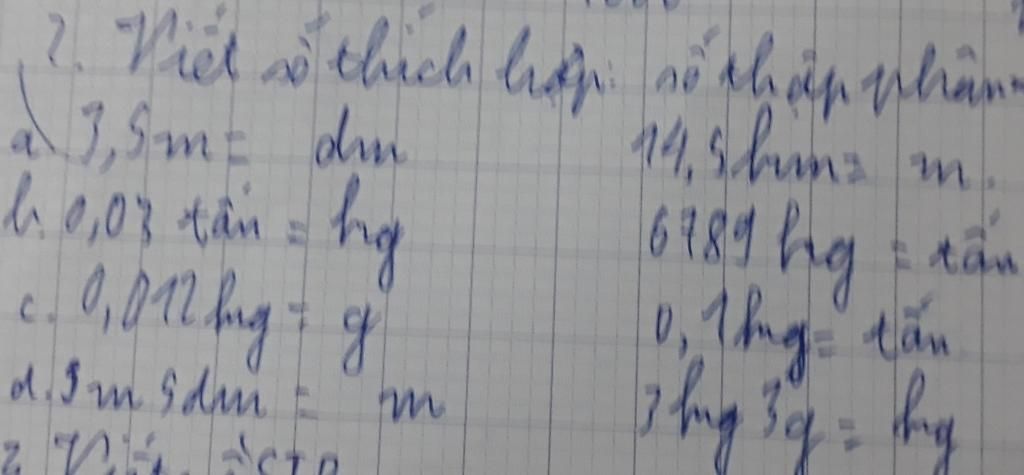 2. Viết số thích hợp: số thập phân
a. 3,5m = dm 14,5km = m.
b. 0,03 tấn = kg 6789 kg = tấn
c. 0,012kg = g 0,1kg = tấn
d. 5m 5dm = m 3kg 3g = kg